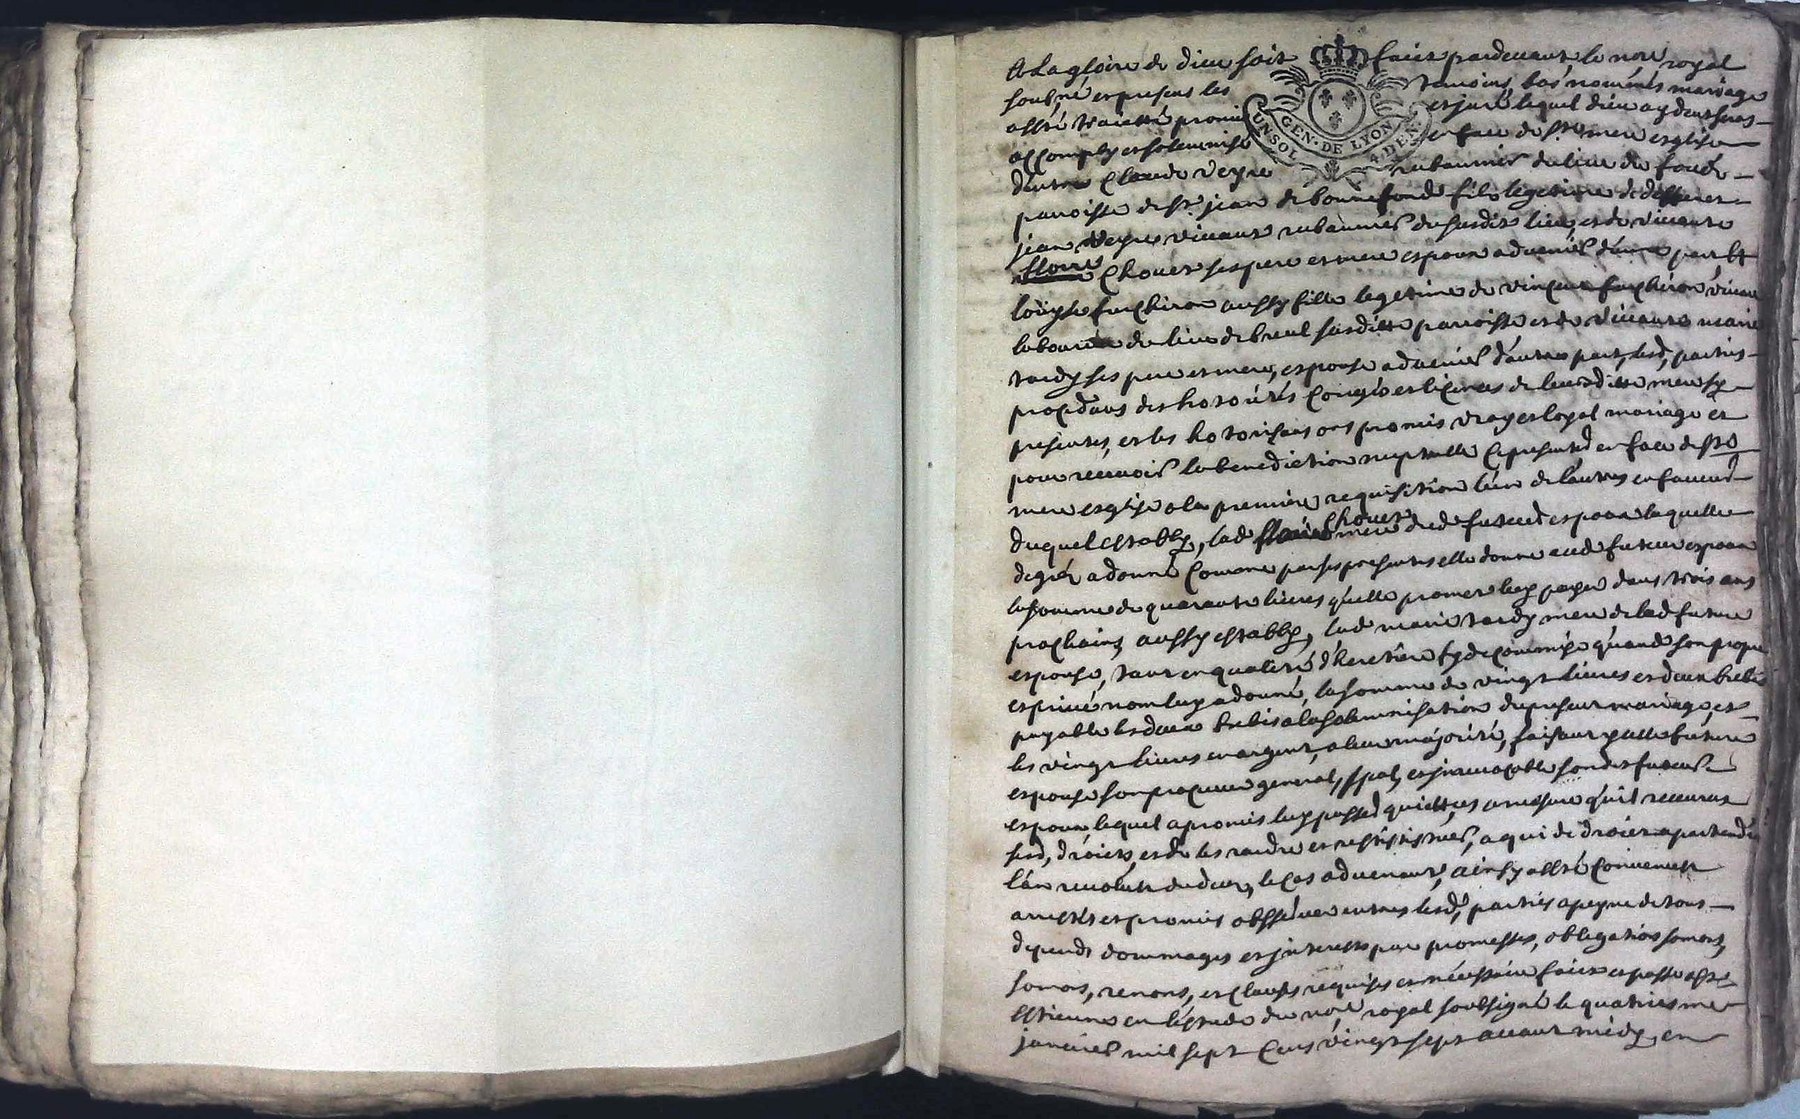 A La gloire de dieu soit faict pardevant le nore royal
soubné et presens les temoins bas nommés mariage
esté traicté promis et juré lequel dieu aydant sera
accomply et solemnisé en face de Ste mere esglise
GEN. DE LYON
UN SOL 4. DEN.
d'entre Claude Veyre rubannier du lieu de
parroisse de St jean de bonnefond fils legetime de deffunct
jean Veyre vivant rubannier du susdit lieu, et de vivante
Chovet ses pere et mere espoux advenir d'une part Et
Louyse fucheron aussy fille legetime de vincent fucheron vivant
laboureur du lieu de breul susditte parroisse et de vivante marie
tardy ses pere et mere, espouse advenir d'autre part, lesd, parties
procedans des hotorités congés et licences de leursdittes meres icy
presentes, et les hotorisant ont promis vray et loyal mariage et
pour recevoir la benediction nuptialle ce presenter en face de Ste
mere esglise a la premiere requisition l'un de l'autre en faveur
duquel estably, lad Chovet mere dud futeur espoux laquelle
de gré a donné comme par ses presentes elle donne aud futeur espoux
la somme de quarante livres qu'elle promet luy payer dans trois ans
prochains, aussy estably, lad marie tardy mere de lad future
espouse, tant en qualité d'heretiere fydecommise qu'en son propre
et privé nom luy a donné, la somme de vingt livres et deux brebis
payable les deux brebis a la solemnisation du present mariage, et
les vingt livres en argent, a leur majorité, faisant icelle future
espouse son procureur general, spal, et jrrevocable sondit futeur
espoux, lequel a promis luy passer quittances a mesure qu'il recevra
sesd, droicts, et de les randre et restistituer, a qui de droict apartiendra
l'an revolu du deces, le cas advenant, ainsy a esté convenu
arresté et promis observer entres lesd, parties a peyne de tous
depends dommages et jnterests par promesses, obligations
renons, et clauses requises et nécessaire faict et passé a St
Estienne en l'estude du nore royal soubsigné le quatriesme
janvier mil sept cens vingt sept avant midy, en